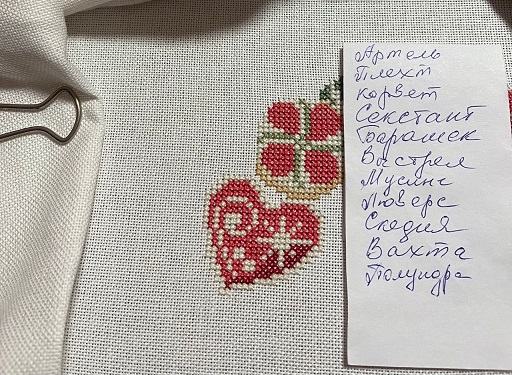 Артель
Плехт
корвет
Секстант
Барашек
Выстрел
Мусинг
Люверс
Скедия
Вахта
Полундра